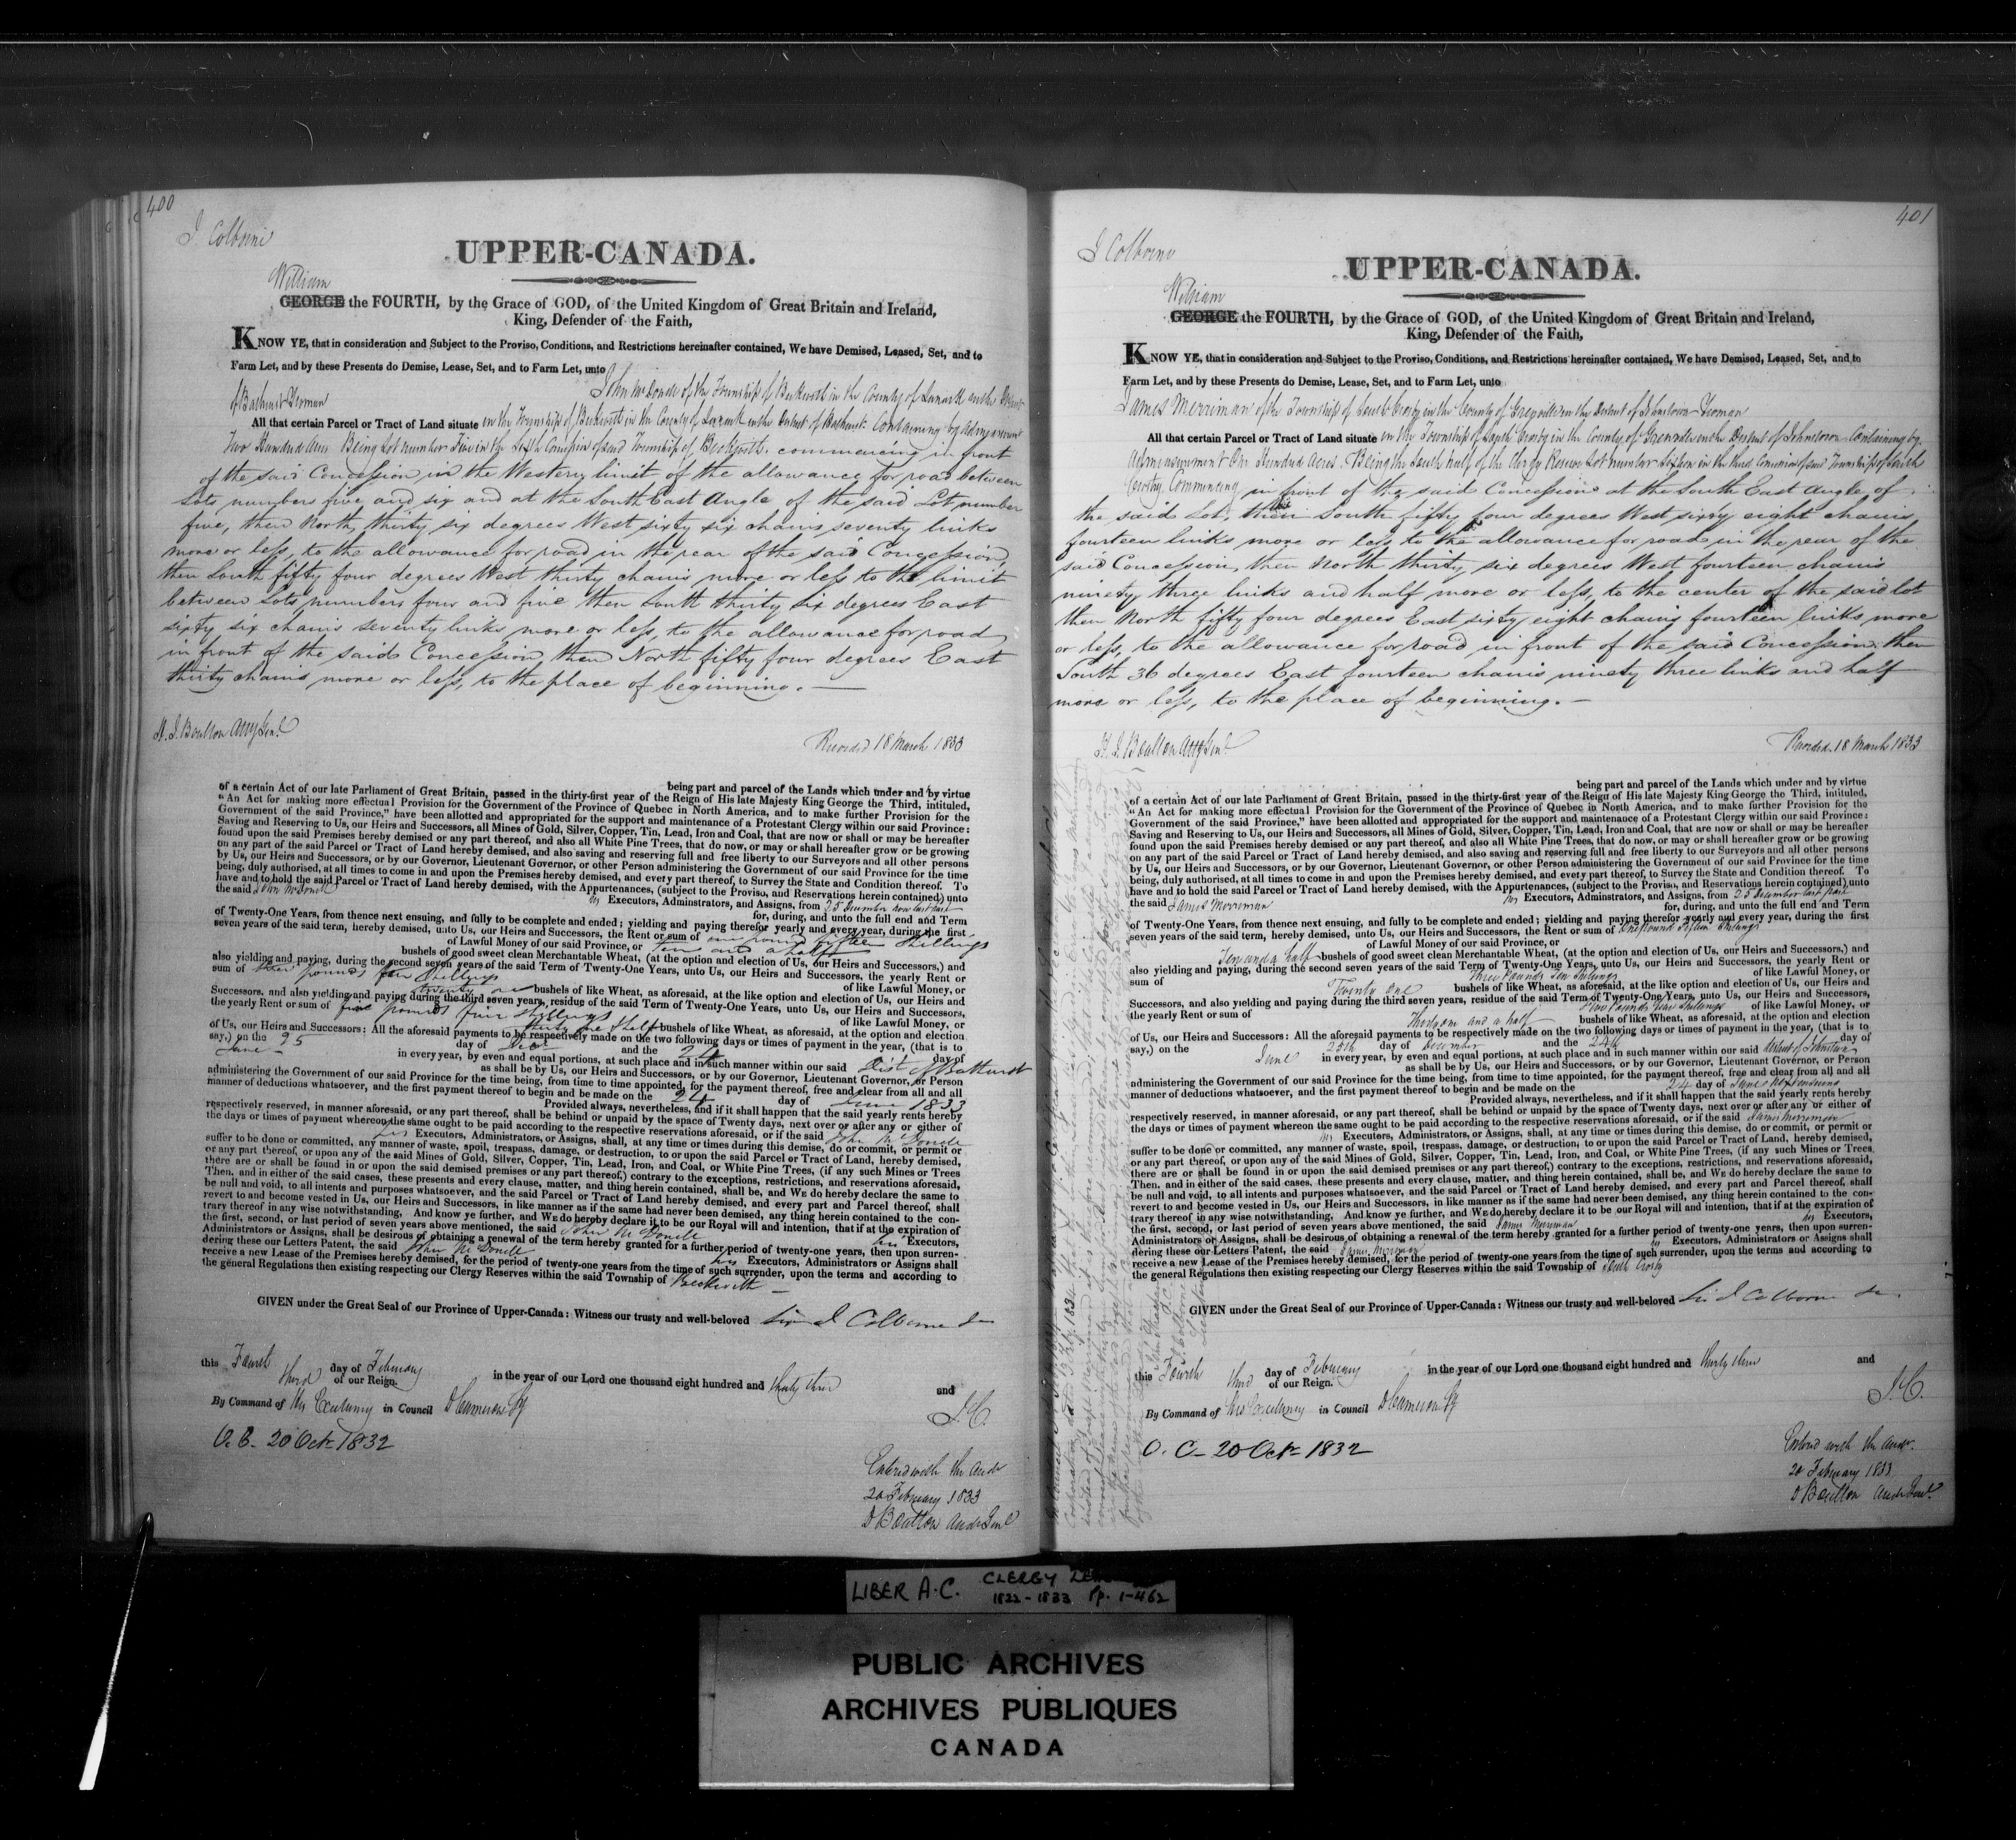 400
J. Colborne
UPPER-CANADA.
William
GEORGE the FOURTH, by the Grace of GOD, of the United Kingdom of Great Britain and Ireland,
King, Defender of the Faith,
KNOW YE, that in consideration and Subject to the Proviso, Conditions, and Restrictions hereinafter contained, We have Demised, Leased, Set, and to
Farm Let, and by these Presents do Demise, Lease, Set, and to Farm Let, unto
John McDonell of the Township of Beckwith in the County of Lanark in the District
of Bathurst Yeoman
All that certain Parcel or Tract of Land situate in the Township of Beckwith in the County of Lanark in the District of Bathurst Containing by Admeasurement
Two Hundred Acres Being Lot number Five in the Sixth Concession of said Township of Beckwith. commencing in front
of the said Concession in the Western limit of the allowance for road between
Lots numbers five and six and at the South East Angle of the said Lot number
five, then North thirty six degrees West sixty six chains seventy links
more or less, to the allowance for road in the rear of the said Concession,
then South fifty four degrees West thirty chains more or less to the limit
between Lots numbers four and five then South thirty six degrees East
sixty six chains seventy links more or less, to the allowance for road
in front of the said Concession then North fifty four degrees East
thirty chains more or less, to the place of beginning. —
H. J. Boulton Atty Genl
Recorded 18 March 1833
being part and parcel of the Lands which under and by virtue
of a certain Act of our late Parliament of Great Britain, passed in the thirty-first year of the Reign of His late Majesty King George the Third, intituled,
"An Act for making more effectual Provision for the Government of the Province of Quebec in North America, and to make further Provision for the
Government of the said Province," have been allotted and appropriated for the support and maintenance of a Protestant Clergy within our said Province:
Saving and Reserving to Us, our Heirs and Successors, all Mines of Gold, Silver, Copper, Tin, Lead, Iron and Coal, that are now or shall or may be hereafter
found upon the said Premises hereby demised or any part thereof, and also all White Pine Trees, that do now, or may or shall hereafter grow or be growing
on any part of the said Parcel or Tract of Land hereby demised, and also saving and reserving full and free liberty to our Surveyors and all other persons
by Us, our Heirs and Successors, or by our Governor, Lieutenant Governor, or other Person administering the Government of our said Province for the time
being, duly authorised, at all times to come in and upon the Premises hereby demised, and every part thereof, to Survey the State and Condition thereof. To
have and to hold the said Parcel or Tract of Land hereby demised, with the Appurtenances, (subject to the Proviso, and Reservations herein contained) unto
the said John McDonell
his Executors, Adminstrators, and Assigns, from 25 December now last past
for, during, and unto the full end and Term
of Twenty-One Years, from thence next ensuing, and fully to be complete and ended; yielding and paying therefor yearly and every year, during the first
seven years of the said term, hereby demised, unto Us, our Heirs and Successors, the Rent or sum of one pound fifteen shillings
of Lawful Money of our said Province, or ten and a half
bushels of good sweet clean Merchantable Wheat, (at the option and election of Us, our Heirs and Successors,) and
also yielding and paying, during the second seven years of the said Term of Twenty-One Years, unto Us, our Heirs and Successors, the yearly Rent or
sum of three pounds ten shillings of like Lawful Money, or
twenty one bushels of like Wheat, as aforesaid, at the like option and election of Us, our Heirs and
Successors, and also yielding and paying during the third seven years, residue of the said Term of Twenty-One Years, unto Us, our Heirs and Successors,
the yearly Rent or sum of five pounds five shillings of like Lawful Money, or
thirty one & half bushels of like Wheat, as aforesaid, at the option and election
of Us, our Heirs and Successors: All the aforesaid payments to be respectively made on the two following days or times of payment in the year, (that is to
say,) on the 25 day of Decr and the 24 day of
June in every year, by even and equal portions, at such place and in such manner within our said Dist of Bathurst
as shall be by Us, our Heirs and Successors, or by our Governor, Lieutenant Governor, or Person
administering the Government of our said Province for the time being, from time to time appointed, for the payment thereof, free and clear from all and all
manner of deductions whatsoever, and the first payment thereof to begin and be made on the 24 day of June 1833
Provided always, nevertheless, and if it shall happen that the said yearly rents hereby
respectively reserved, in manner aforesaid, or any part thereof, shall be behind or unpaid by the space of Twenty days, next over or after any or either of
the days or times of payment whereon the same ought to be paid according to the respective reservations aforesaid, or if the said John McDonell
his Executors, Administrators, or Assigns, shall, at any time or times during this demise, do or commit, or permit or
suffer to be done or committed, any manner of waste, spoil, trespass, damage, or destruction, to or upon the said Parcel or Tract of Land, hereby demised,
or any part thereof, or upon any of the said Mines of Gold, Silver, Copper, Tin, Lead, Iron, and Coal, or White Pine Trees, (if any such Mines or Trees
there are or shall be found in or upon the said demised premises or any part thereof,) contrary to the exceptions, restrictions, and reservations aforesaid,
Then, and in either of the said cases, these presents and every clause, matter, and thing herein contained, shall be, and WE do hereby declare the same to
be null and void, to all intents and purposes whatsoever, and the said Parcel or Tract of Land hereby demised, and every part and Parcel thereof, shall
revert to and become vested in Us, our Heirs and Successors, in like manner as if the same had never been demised, any thing herein contained to the con-
trary thereof in any wise notwithstanding. And know ye further, and WE do hereby declare it to be our Royal will and intention, that if at the expiration of
the first, second, or last period of seven years above mentioned, the said John McDonell his Executors,
Administrators or Assigns, shall be desirous of obtaining a renewal of the term hereby granted for a further period of twenty-one years, then upon surren-
dering these our Letters Patent, the said John McDonell his Executors, Administrators or Assigns shall
receive a new Lease of the Premises hereby demised, for the period of twenty-one years from the time of such surrender, upon the terms and according to
the general Regulations then existing respecting our Clergy Reserves within the said Township of Beckwith —
GIVEN under the Great Seal of our Province of Upper-Canada: Witness our trusty and well-beloved Sir J Colborne &c
this Fourth day of February in the year of our Lord one thousand eight hundred and thirty three and
third of our Reign.
By Command of His Excellency in Council D Cameron Sy
J.C.
O. C. 20 Octr 1832
Entered with the Audr
20 February 1833
D Boulton Audr Genl
401
J Colborne
UPPER-CANADA.
William
GEORGE the FOURTH, by the Grace of GOD, of the United Kingdom of Great Britain and Ireland,
King, Defender of the Faith,
KNOW YE, that in consideration and Subject to the Proviso, Conditions, and Restrictions hereinafter contained, We have Demised, Leased, Set, and to
Farm Let, and by these Presents do Demise, Lease, Set, and to Farm Let, unto
James Merriman of the Township of South Crosby in the County of Grenville in the District of Johnstown Yeoman
All that certain Parcel or Tract of Land situate in the Township of South Crosby in the County of Grenville in the District of Johnstown Containing by
Admeasurement One Hundred Acres. Being the South half of the Clergy Reserve Lot number Sixteen in the third Concession of said Township of South
Crosby. Commencing in front of the said Concession at the South East Angle of
the said Lot, then South fifty four degrees West sixty eight chains
fourteen links more or less to the allowance for road in the rear of the
said Concession, then North thirty six degrees West fourteen chains
ninety three links and half more or less, to the center of the said lot
then North fifty four degrees East sixty eight chains fourteen links more
or less, to the allowance for road in front of the said Concession, then
South 36 degrees East fourteen chains ninety three links and half
more or less, to the place of beginning. —
H. J. Boulton Atty Genl
Recorded 18 March 1833
being part and parcel of the Lands which under and by virtue
of a certain Act of our late Parliament of Great Britain, passed in the thirty-first year of the Reign of His late Majesty King George the Third, intituled,
"An Act for making more effectual Provision for the Government of the Province of Quebec in North America, and to make further Provision for the
Government of the said Province," have been allotted and appropriated for the support and maintenance of a Protestant Clergy within our said Province:
Saving and Reserving to Us, our Heirs and Successors, all Mines of Gold, Silver, Copper, Tin, Lead, Iron and Coal, that are now or shall or may be hereafter
found upon the said Premises hereby demised or any part thereof, and also all White Pine Trees, that do now, or may or shall hereafter grow or be growing
on any part of the said Parcel or Tract of Land hereby demised, and also saving and reserving full and free liberty to our Surveyors and all other persons
by Us, our Heirs and Successors, or by our Governor, Lieutenant Governor, or other Person administering the Government of our said Province for the time
being, duly authorised, at all times to come in and upon the Premises hereby demised, and every part thereof, to Survey the State and Condition thereof. To
have and to hold the said Parcel or Tract of Land hereby demised, with the Appurtenances, (subject to the Proviso, and Reservations herein contained) unto
the said James Merriman his Executors, Adminstrators, and Assigns, from 25 December last past
for, during, and unto the full end and Term
of Twenty-One Years, from thence next ensuing, and fully to be complete and ended; yielding and paying therefor yearly and every year, during the first
seven years of the said term, hereby demised, unto Us, our Heirs and Successors, the Rent or sum of One pound Fifteen Shillings
of Lawful Money of our said Province, or
Ten and a half bushels of good sweet clean Merchantable Wheat, (at the option and election of Us, our Heirs and Successors,) and
also yielding and paying, during the second seven years of the said Term of Twenty-One Years, unto Us, our Heirs and Successors, the yearly Rent or
sum of Three Pounds Ten Shillings of like Lawful Money, or
Twenty One bushels of like Wheat, as aforesaid, at the like option and election of Us, our Heirs and
Successors, and also yielding and paying during the third seven years, residue of the said Term of Twenty-One Years, unto Us, our Heirs and Successors,
the yearly Rent or sum of Five Pounds Five Shillings of like Lawful Money, or
Thirty one and a half bushels of like Wheat, as aforesaid, at the option and election
of Us, our Heirs and Successors: All the aforesaid payments to be respectively made on the two following days or times of payment in the year, (that is to
say,) on the 25th day of December and the 24th day of
June in every year, by even and equal portions, at such place and in such manner within our said District of Johnstown
as shall be by Us, our Heirs and Successors, or by our Governor, Lieutenant Governor, or Person
administering the Government of our said Province for the time being, from time to time appointed, for the payment thereof, free and clear from all and all
manner of deductions whatsoever, and the first payment thereof to begin and be made on the 24 day of June next ensuing
Provided always, nevertheless, and if it shall happen that the said yearly rents hereby
respectively reserved, in manner aforesaid, or any part thereof, shall be behind or unpaid by the space of Twenty days, next over or after any or either of
the days or times of payment whereon the same ought to be paid according to the respective reservations aforesaid, or if the said James Merriman
his Executors, Administrators, or Assigns, shall, at any time or times during this demise, do or commit, or permit or
suffer to be done or committed, any manner of waste, spoil, trespass, damage, or destruction, to or upon the said Parcel or Tract of Land, hereby demised,
or any part thereof, or upon any of the said Mines of Gold, Silver, Copper, Tin, Lead, Iron, and Coal, or White Pine Trees, (if any such Mines or Trees
there are or shall be found in or upon the said demised premises or any part thereof,) contrary to the exceptions, restrictions, and reservations aforesaid,
Then, and in either of the said cases, these presents and every clause, matter, and thing herein contained, shall be, and WE do hereby declare the same to
be null and void, to all intents and purposes whatsoever, and the said Parcel or Tract of Land hereby demised, and every part and Parcel thereof, shall
revert to and become vested in Us, our Heirs and Successors, in like manner as if the same had never been demised, any thing herein contained to the con-
trary thereof in any wise notwithstanding. And know ye further, and WE do hereby declare it to be our Royal will and intention, that if at the expiration of
the first, second, or last period of seven years above mentioned, the said James Merriman his Executors,
Administrators or Assigns, shall be desirous of obtaining a renewal of the term hereby granted for a further period of twenty-one years, then upon surren-
dering these our Letters Patent, the said James Merriman his Executors, Administrators or Assigns shall
receive a new Lease of the Premises hereby demised, for the period of twenty-one years from the time of such surrender, upon the terms and according to
the general Regulations then existing respecting our Clergy Reserves within the said Township of South Crosby
GIVEN under the Great Seal of our Province of Upper-Canada: Witness our trusty and well-beloved Sir J Colborne &c
this Fourth day of February in the year of our Lord one thousand eight hundred and thirty three and
third of our Reign.
By Command of His Excellency in Council D Cameron Sy
J.C.
O. C— 20 Octr 1832
Entered with the Audr.
20 February 1833
D Boulton Audr Genl
LIBER A.C. CLERGY
1822-1833 Pp. 1-462
PUBLIC ARCHIVES
ARCHIVES PUBLIQUES
CANADA